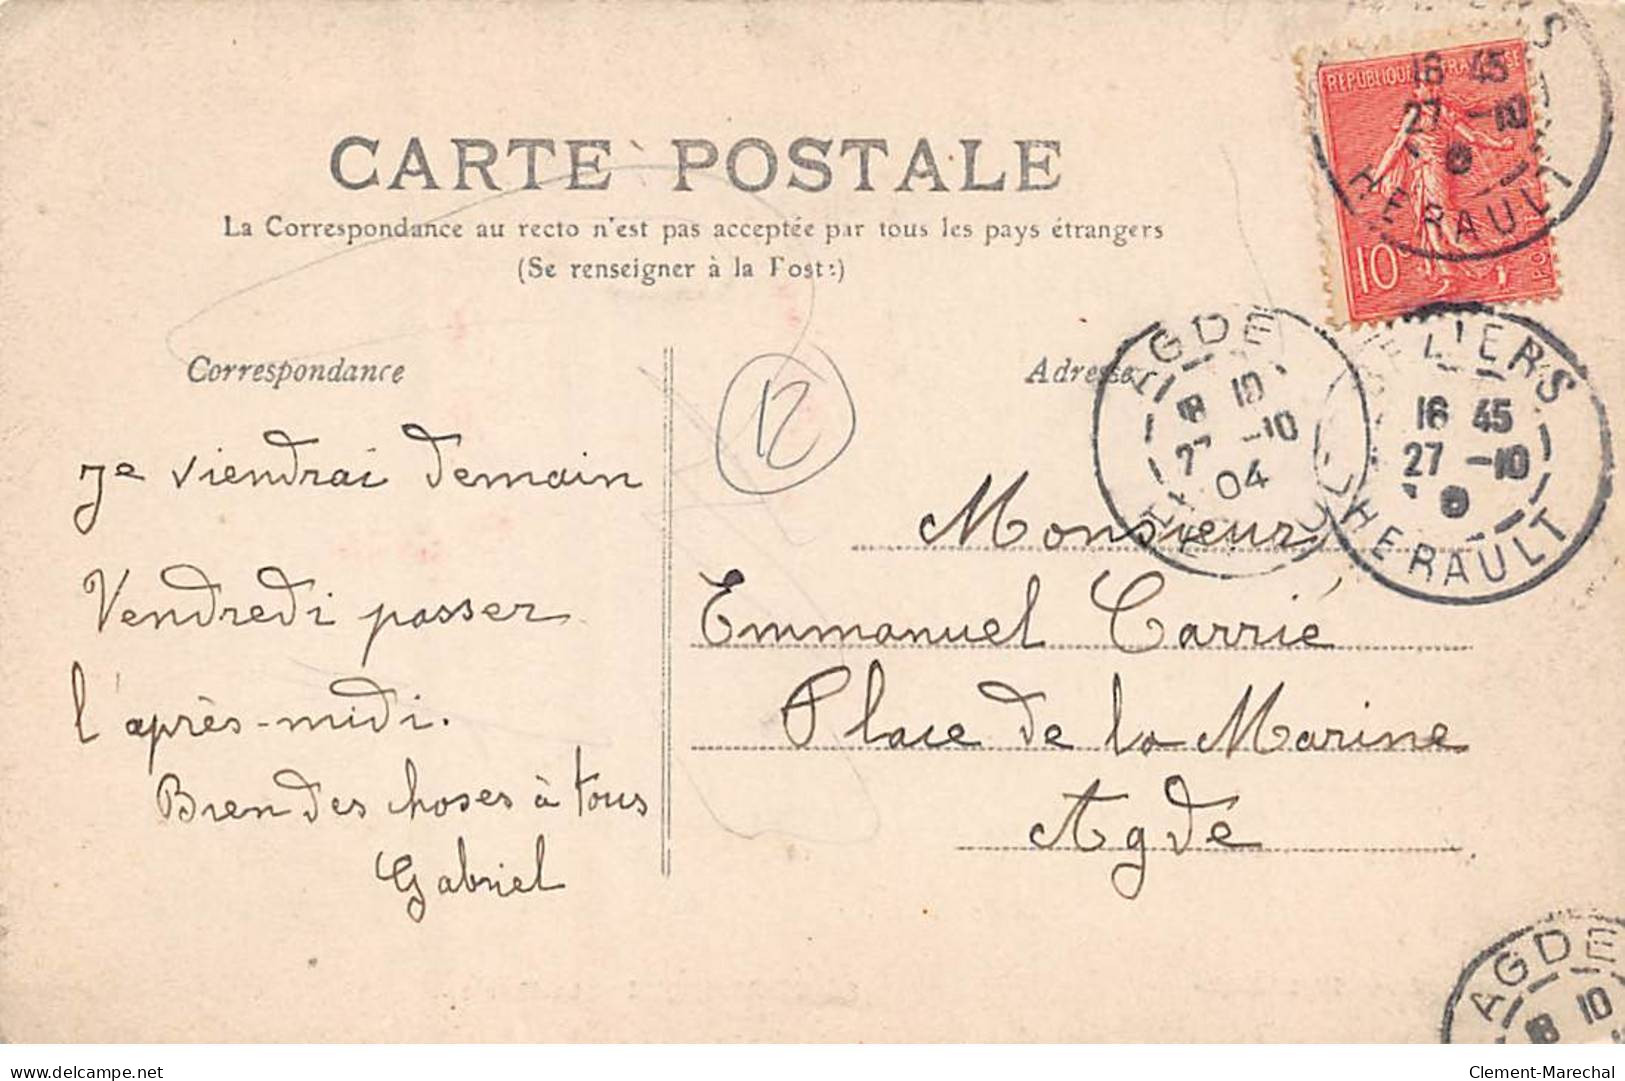 CARTE POSTALE
La Correspondance au recto n'est pas acceptée par tous les pays étrangers
(Se renseigner à la Poste)
Correspondance
Je viendrai demain
Vendredi passer
l'après-midi.
Bien des choses à tous
Gabriel
12
Adresse
Monsieur
Emmanuel Carrié
Place de la Marine
Agde
REPUBLIQUE FRANCAISE
10
16 45
27 -10
HERAULT
AGDE
18 10
27 -10
04
16 45
27 -10
HERAULT
AGDE
18 10
delcampe.net
Clement-Marechal